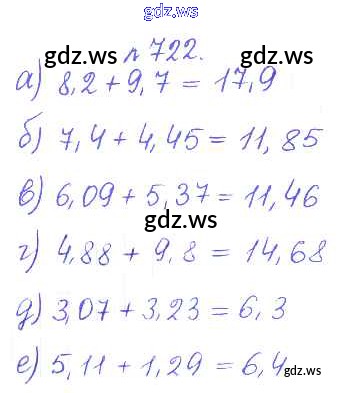 gdz.ws
gdz.ws № 722. gdz.ws
а) 8,2 + 9,7 = 17,9
б) 7,4 + 4,45 = 11,85
в) 6,09 + 5,37 = 11,46
gdz.ws
г) 4,88 + 9,8 = 14,68
д) 3,07 + 3,23 = 6,3
е) 5,11 + 1,29 = 6,4 gdz.ws